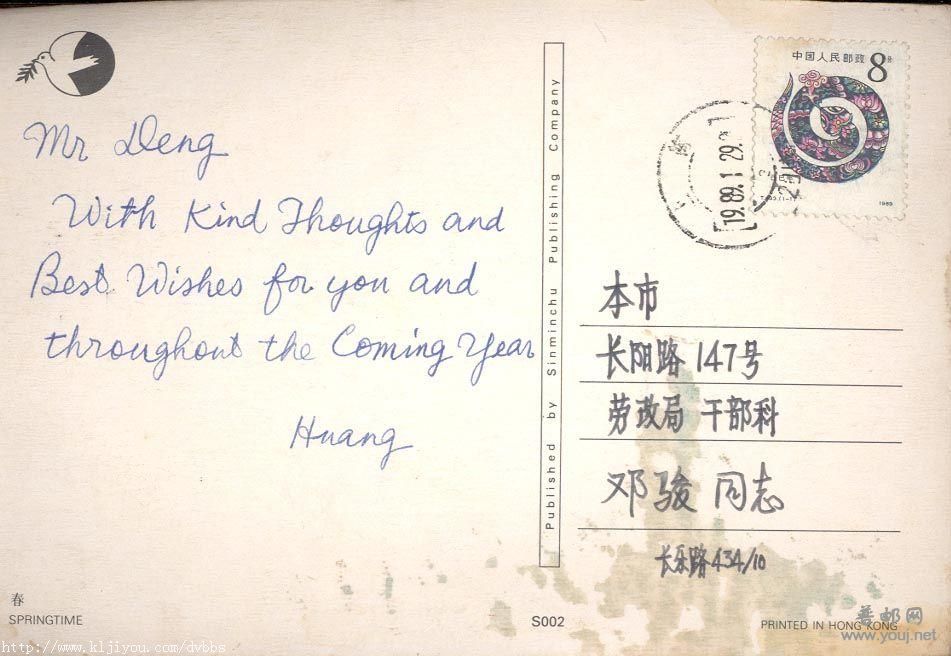 Mr Deng
With Kind Thoughts and
Best Wishes for you and
throughout the Coming Year
Huang
Published by Sinminchu Publishing Company
中国人民邮政 8分
1989
19.89.1 29.
本市
长阳路147号
劳改局 干部科
邓骏 同志
长乐路434/10
春
SPRINGTIME
S002
PRINTED IN HONG KONG
普邮网
www.youj.net
http://www.kljiyou.com/dvbbs